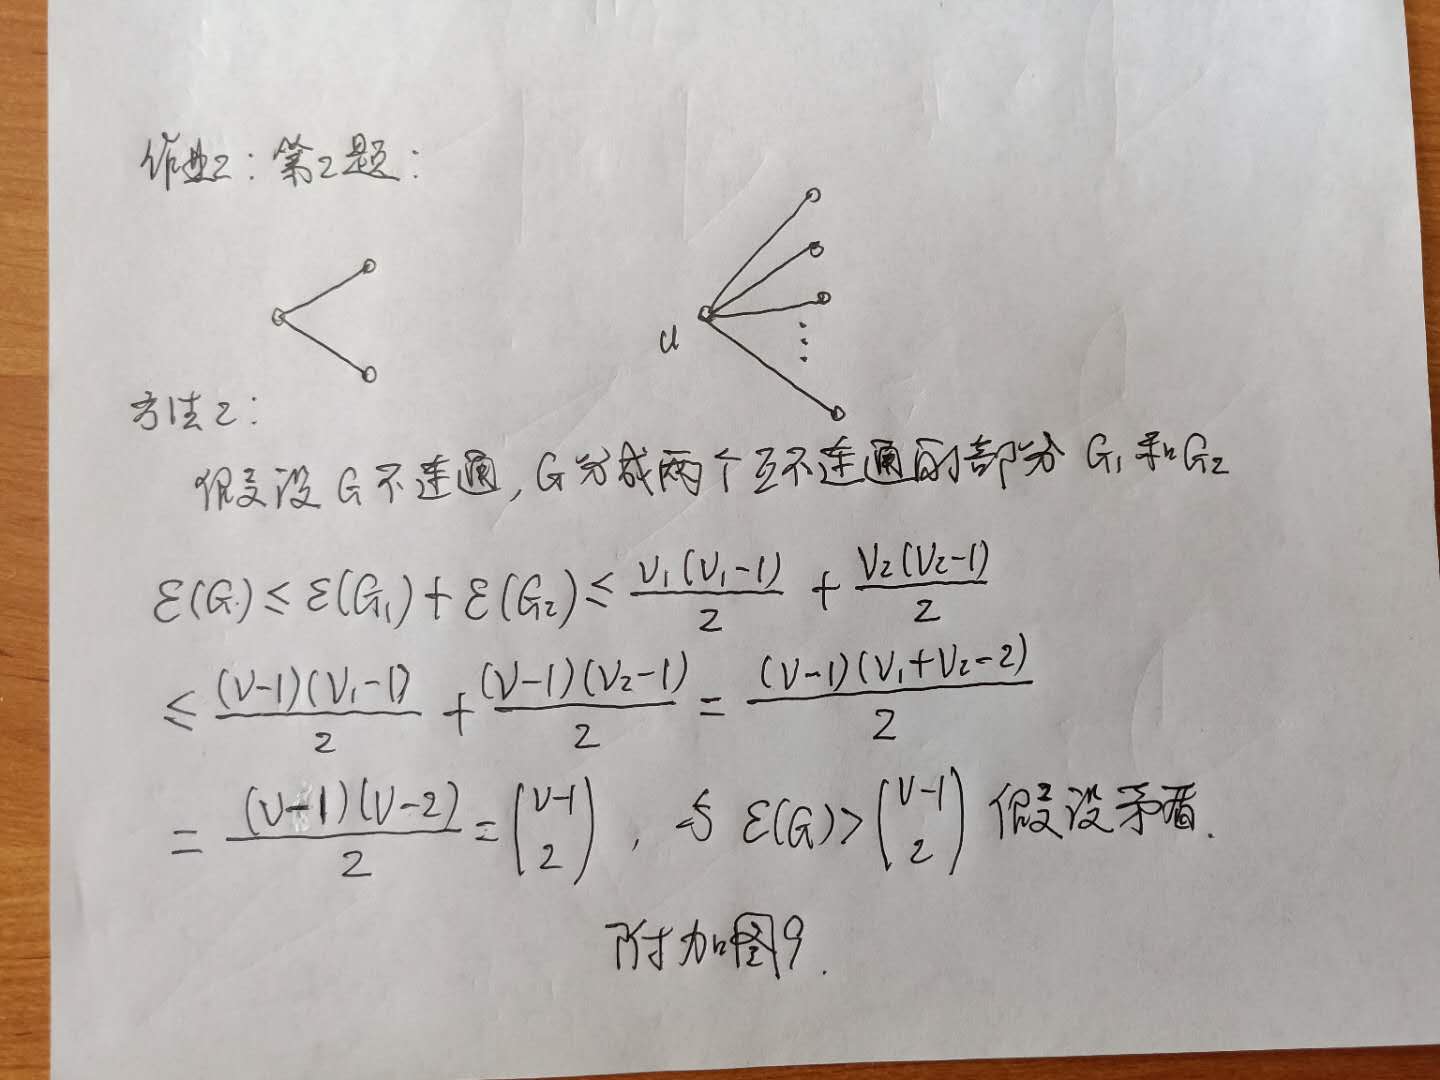 作业2：第2题：
u
方法2：
假设G不连通，G分成两个互不连通的部分 G₁和G₂
ε(G)≤ε(G₁)+ε(G₂)≤ν₁(ν₁-1)/2 + ν₂(ν₂-1)/2
≤(ν-1)(ν₁-1)/2 + (ν-1)(ν₂-1)/2 = (ν-1)(ν₁+ν₂-2)/2
= (ν-1)(ν-2)/2 = (ν-1 2)，与 ε(G)>(ν-1 2) 假设矛盾.
附加图9.